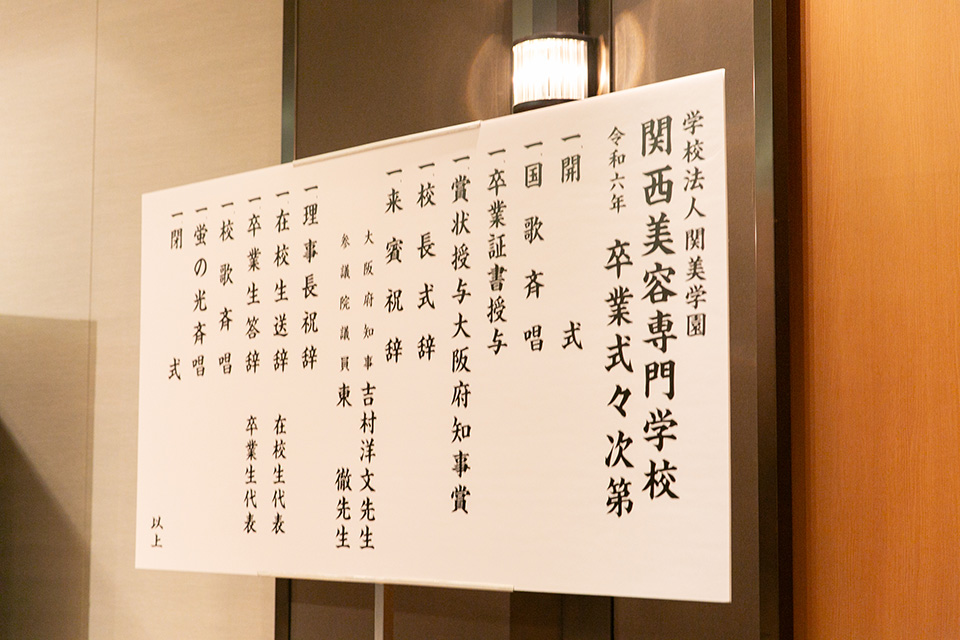 学校法人 関美学園
関西美容専門学校
令和六年 卒業式々次第
一、開式
一、国歌斉唱
一、卒業証書授与
一、賞状授与大阪府知事賞
一、校長式辞
一、来賓祝辞
大阪府知事 吉村洋文先生
参議院議員 東 徹先生
一、理事長祝辞
一、在校生送辞 在校生代表
一、卒業生答辞 卒業生代表
一、校歌斉唱
一、蛍の光斉唱
一、閉式
以上